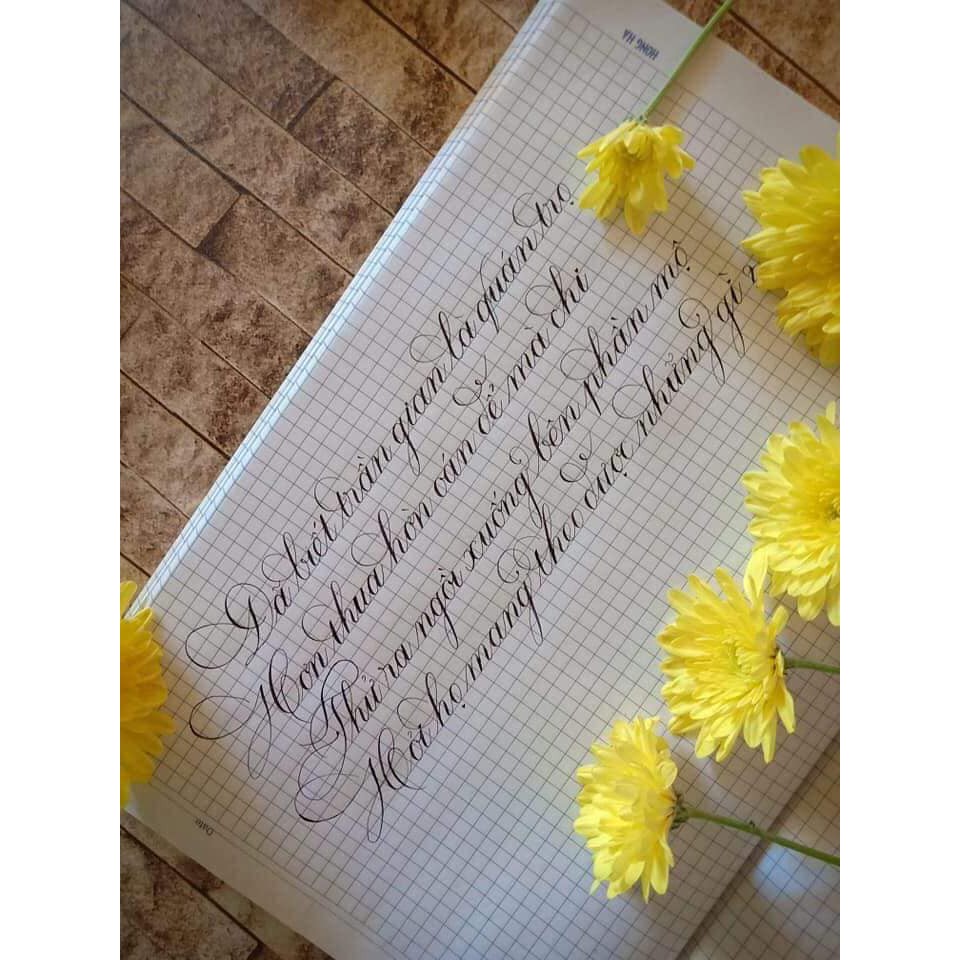 HONG HA
Đã biết trần gian là quán trọ
Hơn thua hờn oán để mà chi
Thử ra ngồi xuống bên phần mộ
Hỏi họ mang theo được những gì
Date